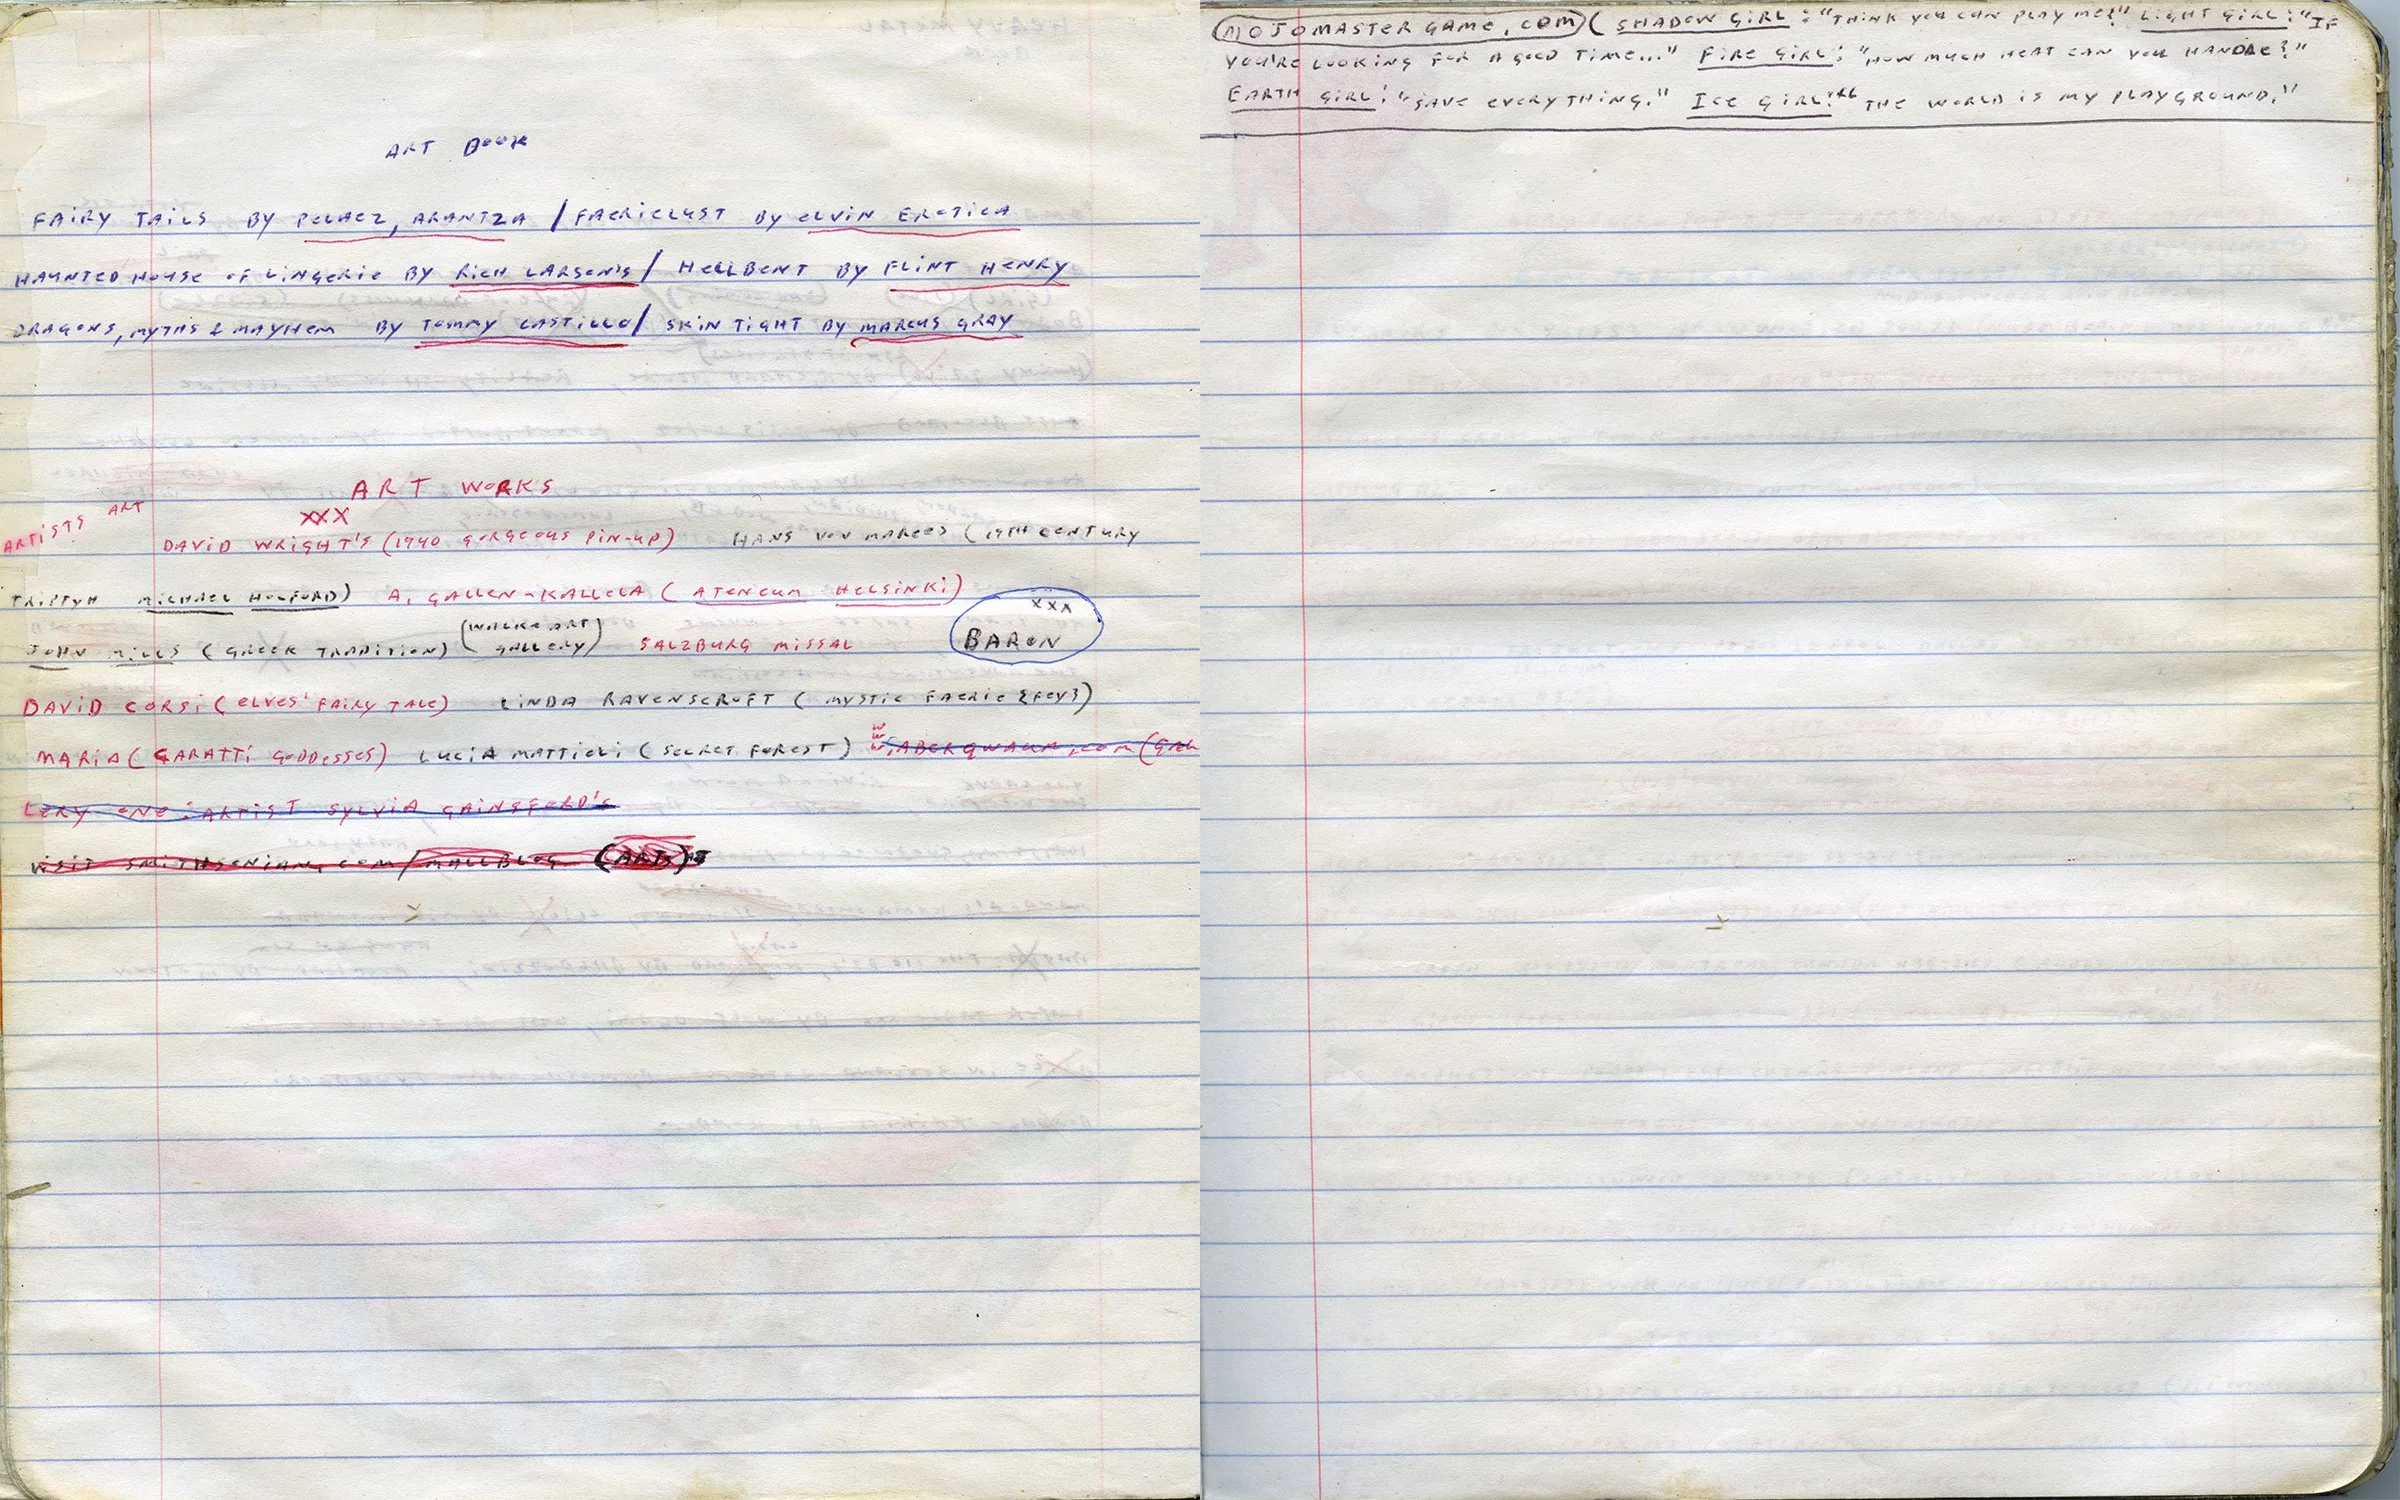 ART BOOK
FAIRY TAILS BY PELAEZ, ARANTZA / FAERIELUST BY ELVIN EROTICA
HAUNTED HOUSE OF LINGERIE BY RICH LARSON'S / HELLBENT BY FLINT HENRY
DRAGONS, MYTHS & MAYHEM BY TOMMY CASTILLO / SKIN TIGHT BY MARCUS GRAY
ART WORKS
ARTISTS ART
XXX
DAVID WRIGHT'S (1940 GORGEOUS PIN-UP) HANS VON MAREES (19TH CENTURY
TRIPTYH MICHAEL HOLFORD) A. GALLEN-KALLELA (ATENEUM HELSINKI)
XXX
BARON
JOHN MILLS (GREEK TRADITION) (WALKE ART GALLERY) SALZBURG MISSAL
DAVID CORSI (ELVES' FAIRY TALE) LINDA RAVENSCROFT (MYSTIC FAERIE {FEY})
MARIA (CARATTI GODDESSES) LUCIA MATTIOLI (SECRET FOREST)
LERY ONE: ARTIST SYLVIA GAINSFORD'S
VISIT SMITHSONIAN.COM/MALLBLOG (ARTS)
MOJOMASTERGAME.COM (SHADOW GIRL: "THINK YOU CAN PLAY ME?" LIGHT GIRL: "IF
YOU'RE LOOKING FOR A GOOD TIME..." FIRE GIRL: "HOW MUCH HEAT CAN YOU HANDLE?"
EARTH GIRL: "SAVE EVERYTHING." ICE GIRL: "THE WORLD IS MY PLAYGROUND."